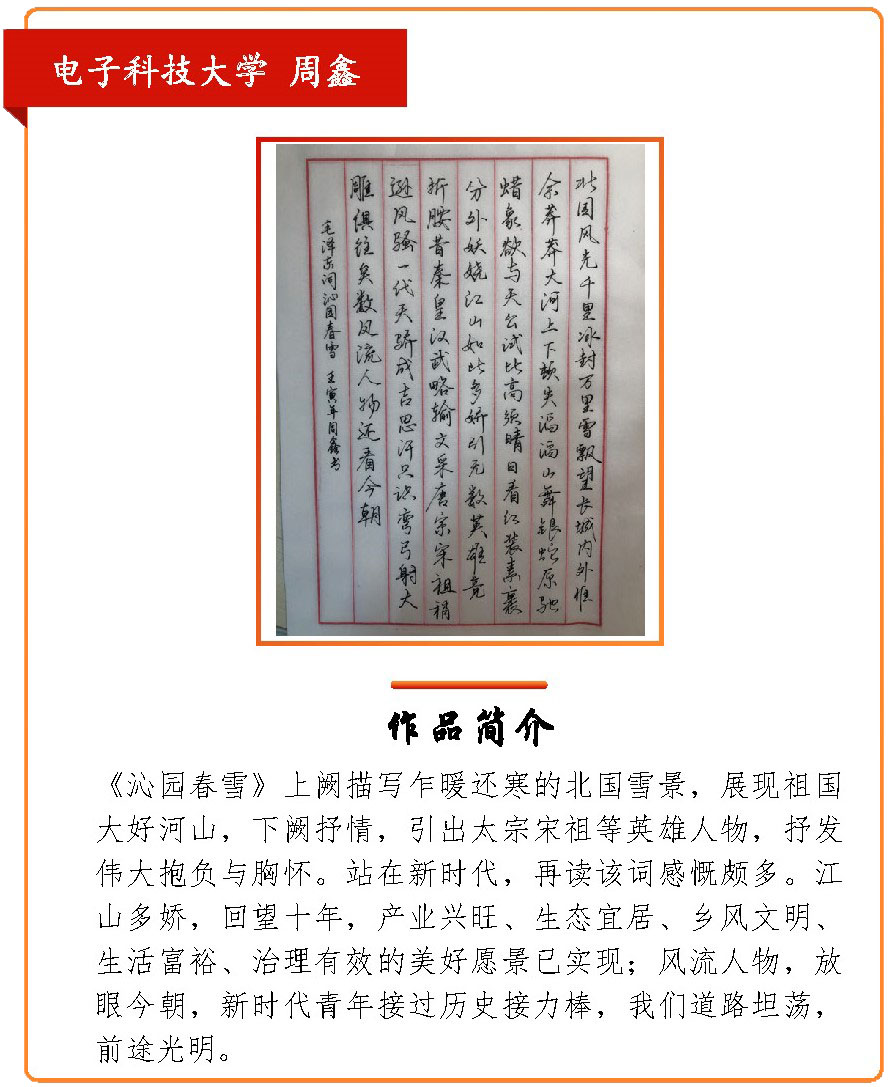 电子科技大学 周鑫
北国风光千里冰封万里雪飘望长城内外惟
余莽莽大河上下顿失滔滔山舞银蛇原驰
蜡象欲与天公试比高须晴日看红装素裹
分外妖娆江山如此多娇引无数英雄竞
折腰昔秦皇汉武略输文采唐宗宋祖稍
逊风骚一代天骄成吉思汗只识弯弓射大
雕俱往矣数风流人物还看今朝
毛泽东词沁园春雪 壬寅年周鑫书
作品简介
《沁园春雪》上阙描写乍暖还寒的北国雪景，展现祖国
大好河山，下阙抒情，引出太宗宋祖等英雄人物，抒发
伟大抱负与胸怀。站在新时代，再读该词感慨颇多。江
山多娇，回望十年，产业兴旺、生态宜居、乡风文明、
生活富裕、治理有效的美好愿景已实现；风流人物，放
眼今朝，新时代青年接过历史接力棒，我们道路坦荡，
前途光明。